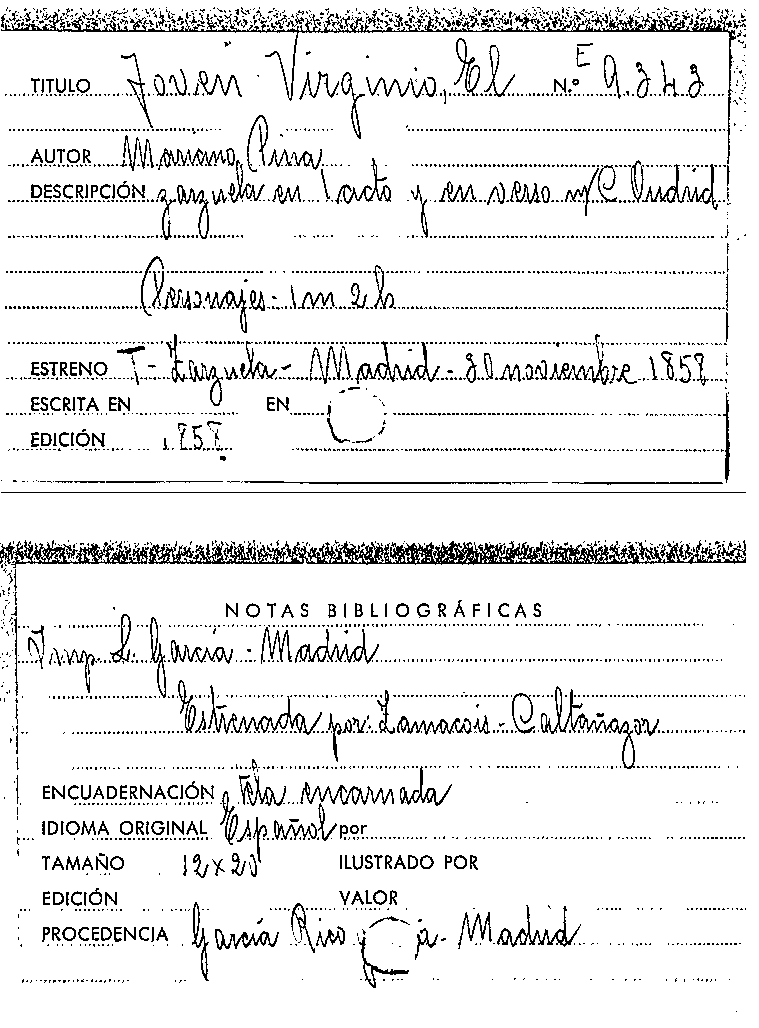 TITULO Joven Virginio, El N.º E 9.343
AUTOR Mariano Pina
DESCRIPCIÓN zarzuela en 1 acto y en verso m/C. Oudrid
Personajes - 1 m 2 h
ESTRENO T- Zarzuela - Madrid - 30 noviembre 1858
ESCRITA EN EN
EDICIÓN 1858
NOTAS BIBLIOGRÁFICAS
Imp L. García - Madrid
Estrenada por: Zamacois - Caltañazor
ENCUADERNACIÓN tela encarnada
IDIOMA ORIGINAL Español por
TAMAÑO 12x20 ILUSTRADO POR
EDICIÓN VALOR
PROCEDENCIA García Rico y - Madrid